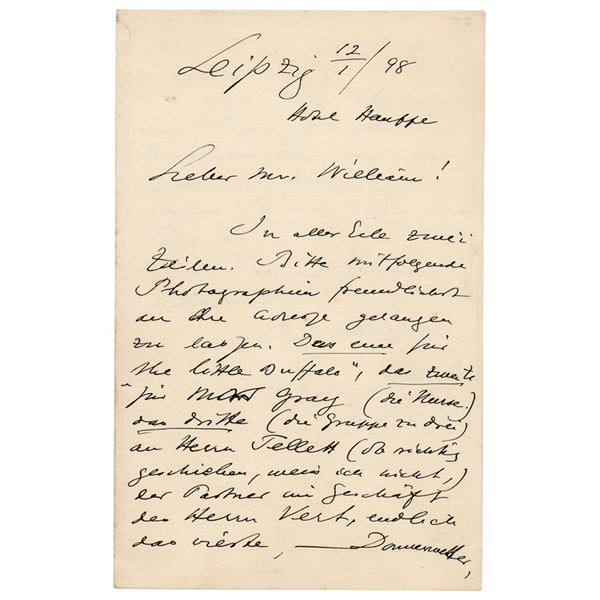 Leipzig 12/1/98
Hotel Hauffe
Lieber Mr. William!
In aller Eile zwei
Zeilen. Bitte mitfolgende
Photographien freundlichst
an die Adresse gelangen
zu lassen. Das eine für
"the little Buffalo", das zweite
für Miss Gray (die Nurse)
das dritte (die Gruppe zu drei)
an Herrn Tellett (ob richtig
geschrieben, weiss ich nicht,)
der Partner im Geschäft
des Herrn Vert, endlich
das vierte, — Donnerwetter,